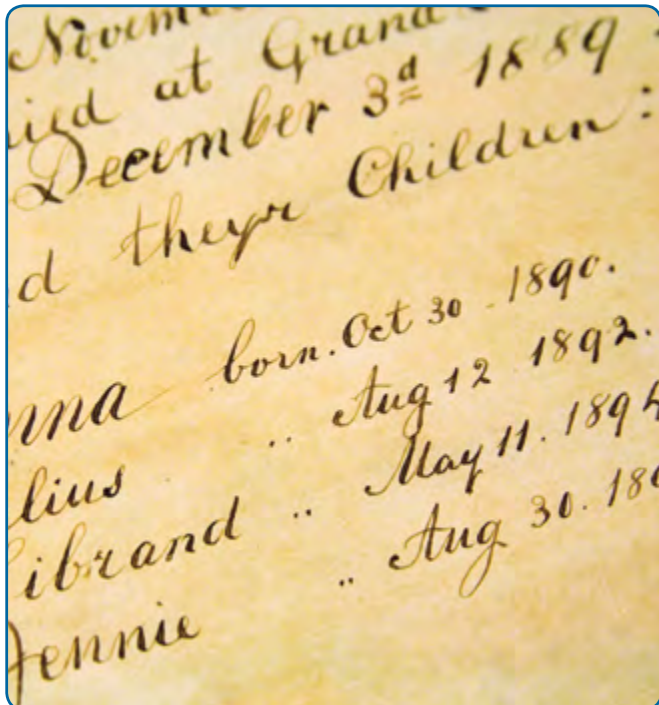 Novem
ried at Grand
December 3d 1889.
d theyr Children:
nna born. Oct 30. 1890.
lius " Aug 12 1892.
ibrand " May 11. 1894
Jennie " Aug 30. 18